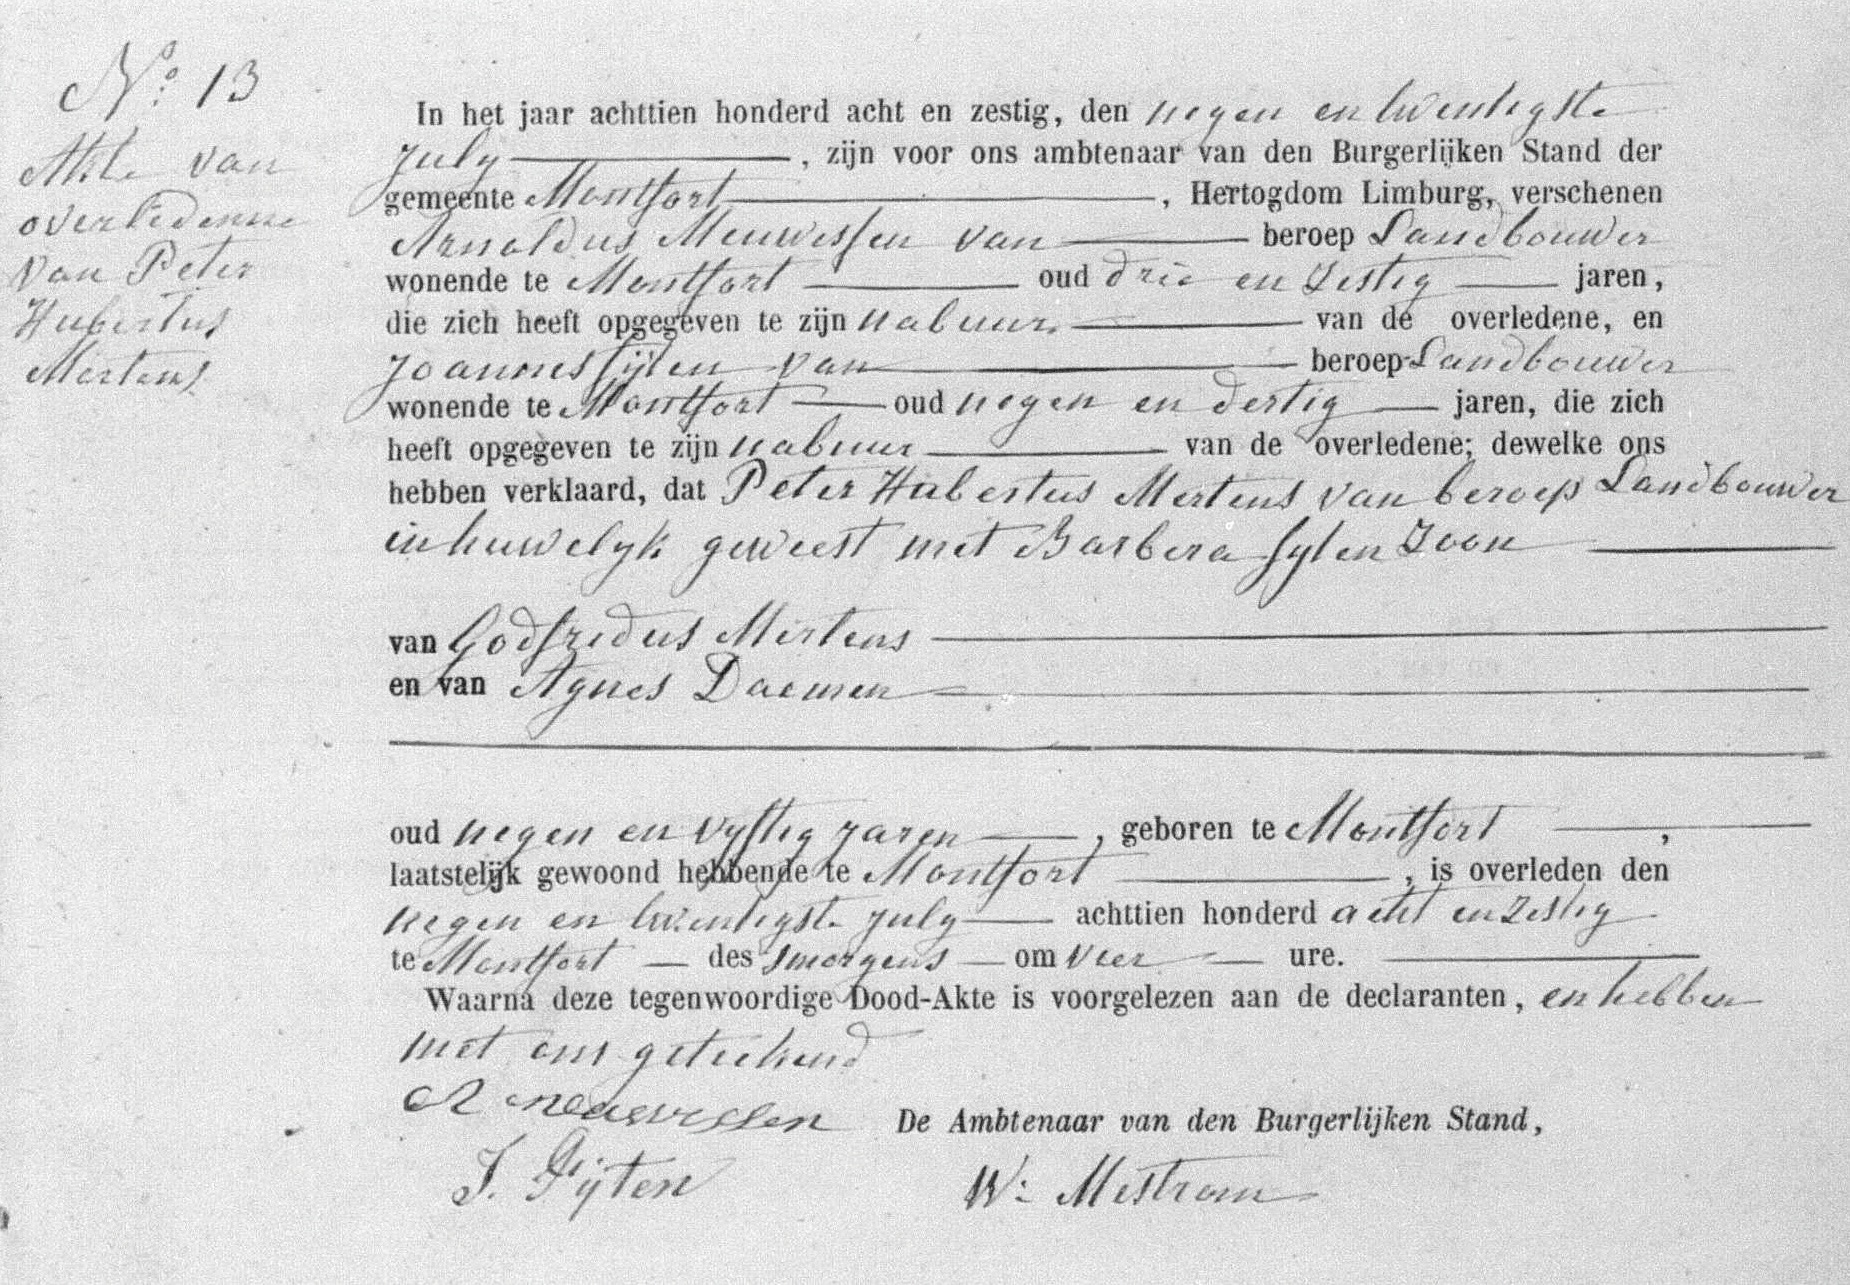 No. 13
Akte van
overledenne
van Peter
Hubertus
Mertens
In het jaar achttien honderd acht en zestig, den negen en twentigste
July , zijn voor ons ambtenaar van den Burgerlijken Stand der
gemeente Montfort , Hertogdom Limburg, verschenen
Arnoldus Meuwissen van beroep Landbouwer
wonende te Montfort oud drie en zestig jaren,
die zich heeft opgegeven te zijn nabuur van de overledene, en
Joannes van beroep Landbouwer
wonende te Montfort oud negen en dertig jaren, die zich
heeft opgegeven te zijn nabuur van de overledene; dewelke ons
hebben verklaard, dat Peter Hubertus Mertens van beroep Landbouwer
in huwelyk geweest met Barbera Zoon
van Godfridus Mertens
en van Agnes Daemen
oud negen en vyftig jaren , geboren te Montfort ,
laatstelijk gewoond hebbende te Montfort , is overleden den
negen en twentigste july achttien honderd acht en zestig
te Montfort des smorgens om vier ure.
Waarna deze tegenwoordige Dood-Akte is voorgelezen aan de declaranten, en hebben
met ons geteekend
A Meuwissen
De Ambtenaar van den Burgerlijken Stand,
J. Gijten
W: Mestrom